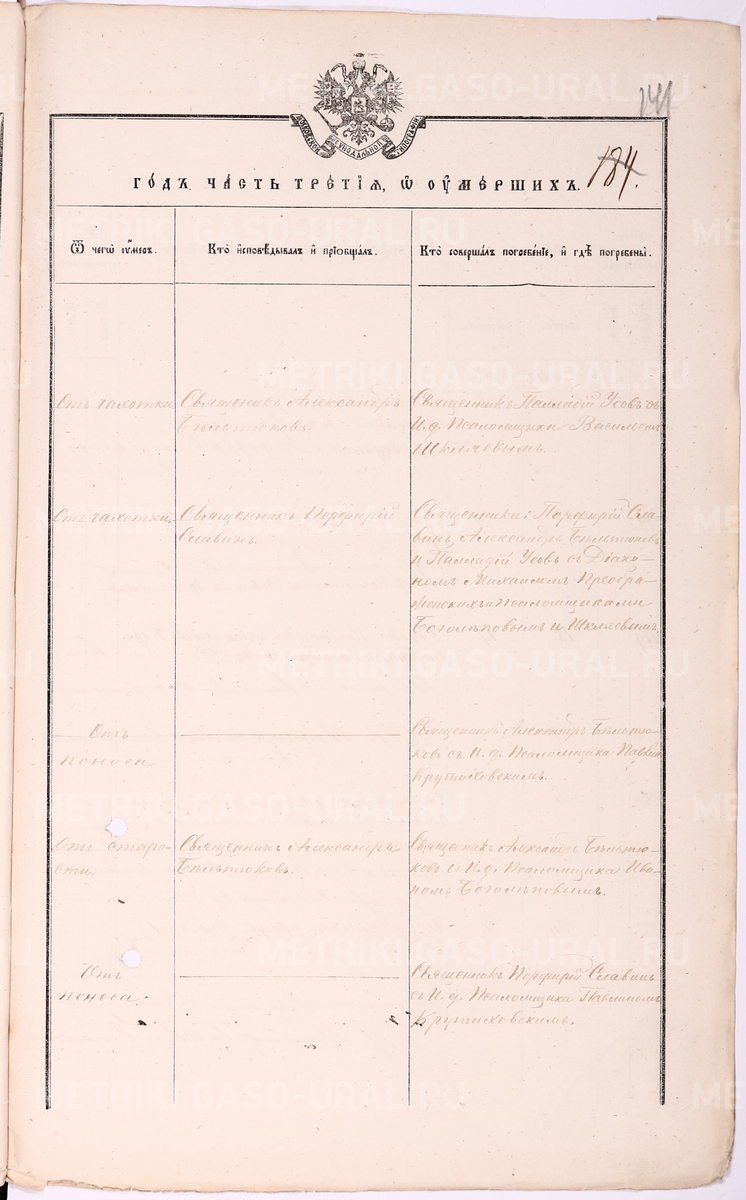 МОСКОВСКОЙ СѴНОДАЛЬНОЙ ТИПОГРАФІИ
141
184.
ГО́ДЪ, ЧА́СТЬ ТРЕ́ТІѦ, Ѡ ОУМЕ́РШИХЪ.
Ѿ чегѡ̀ оу́меръ.
Кто̀ и҆сповѣ́дывалъ и҆ прїѡбща́лъ.
Кто̀ соверша́лъ погребе́нїе, и҆ гдѣ̀ погребены̀.
Отъ чахотки
Священникъ Александръ
Бѣльтюковъ.
Священникъ Палладій Усовъ съ
И. д. Псаломщика Васильемъ
Шкляевымъ.
Отъ чахотки.
Священникъ Порфирій
Славинъ.
Священники: Порфирій Сла-
винъ, Александръ Бѣльтюковъ
и Палладій Усовъ съ Діако-
номъ Михаиломъ Преобра-
женскихъ и Псаломщиками
Боголѣповымъ и Шкляевымъ.
Отъ
поноса
Священникъ Александръ Бѣльтю-
ковъ съ И. д. Псаломщика Павлин
Крутиховскимъ.
Отъ старо-
сти.
Священникъ Александръ
Бѣльтюковъ.
Священникъ Александръ Бѣльтю-
ковъ съ И. д. Псаломщика Ива-
номъ Боголѣповымъ.
Отъ
поноса.
Священникъ Порфирій Славинъ
съ И. д. Псаломщика Павлиномъ
Крутиховскимъ.
METRIKI.GASO-URAL.RU